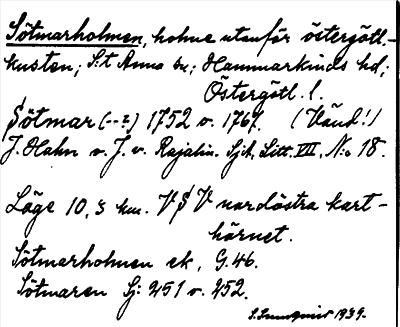 Sötmarholmen, holme utanför östergötl.-
kusten; S:t Anna sn; Hammarkinds hd;
Östergötl. l.
Sötmar (--?) 1752 o. 1767. (Vänd!)
J. Hahn o. J. v. Rajalin. Sjk, Litt. VIII, No 18.
Läge 10,3 km. VSV nordöstra kart-
hörnet.
Sötmarholmen ek, G. 46.
Sötmaren Sj: 251 o. 252.
S. Ljungqvist 1939.